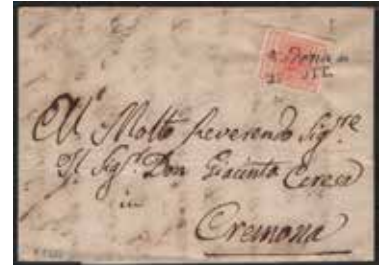 Al Molto Reverendo Sig.re
Il Sig.r Don Giacinto Ceresa
in
Cremona